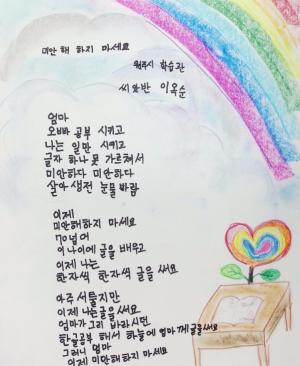 미안해 하지 마세요
원주시 학습관
씨앗반 이옥순
엄마
오빠 공부 시키고
나는 일만 시키고
글자 하나 못 가르쳐서
미안하다 미안하다
살아생전 눈물바람
이제
미안해하지 마세요
70넘어
이 나이에 글을 배우고
이제 나는
한자씩 한자씩 글을 써요
아주 서툴지만
이제 나는글을 써요
엄마가 그리 바라시던
한글공부 해서 하늘에 엄마께 글을써요
그러니 엄마
이제 미안해하지 마세요